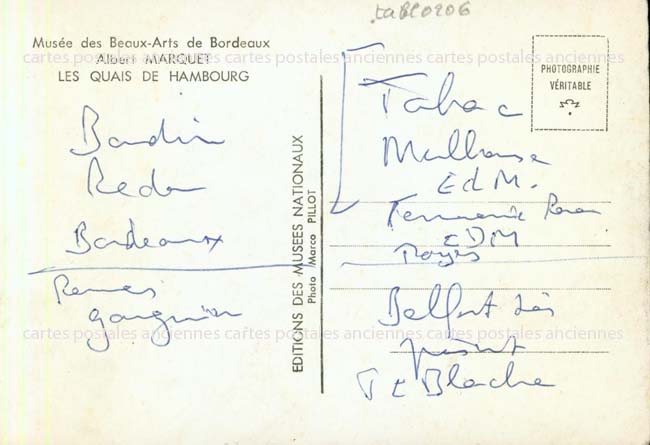 taBL0206
Musée des Beaux-Arts de Bordeaux
cartes postales anciennes cartes postales anciennes cartes postales anciennes
Albert MARQUET
LES QUAIS DE HAMBOURG
PHOTOGRAPHIE
VÉRITABLE
EDITIONS DES MUSÉES NATIONAUX
Photo Marco PILLOT
Redon
Bordeaux
Rennes
gauguin
Tabac
Mulhouse
EdM.
EDM
Troyes
Belfort
cartes postales anciennes cartes postales anciennes cartes postales anciennes
Blache